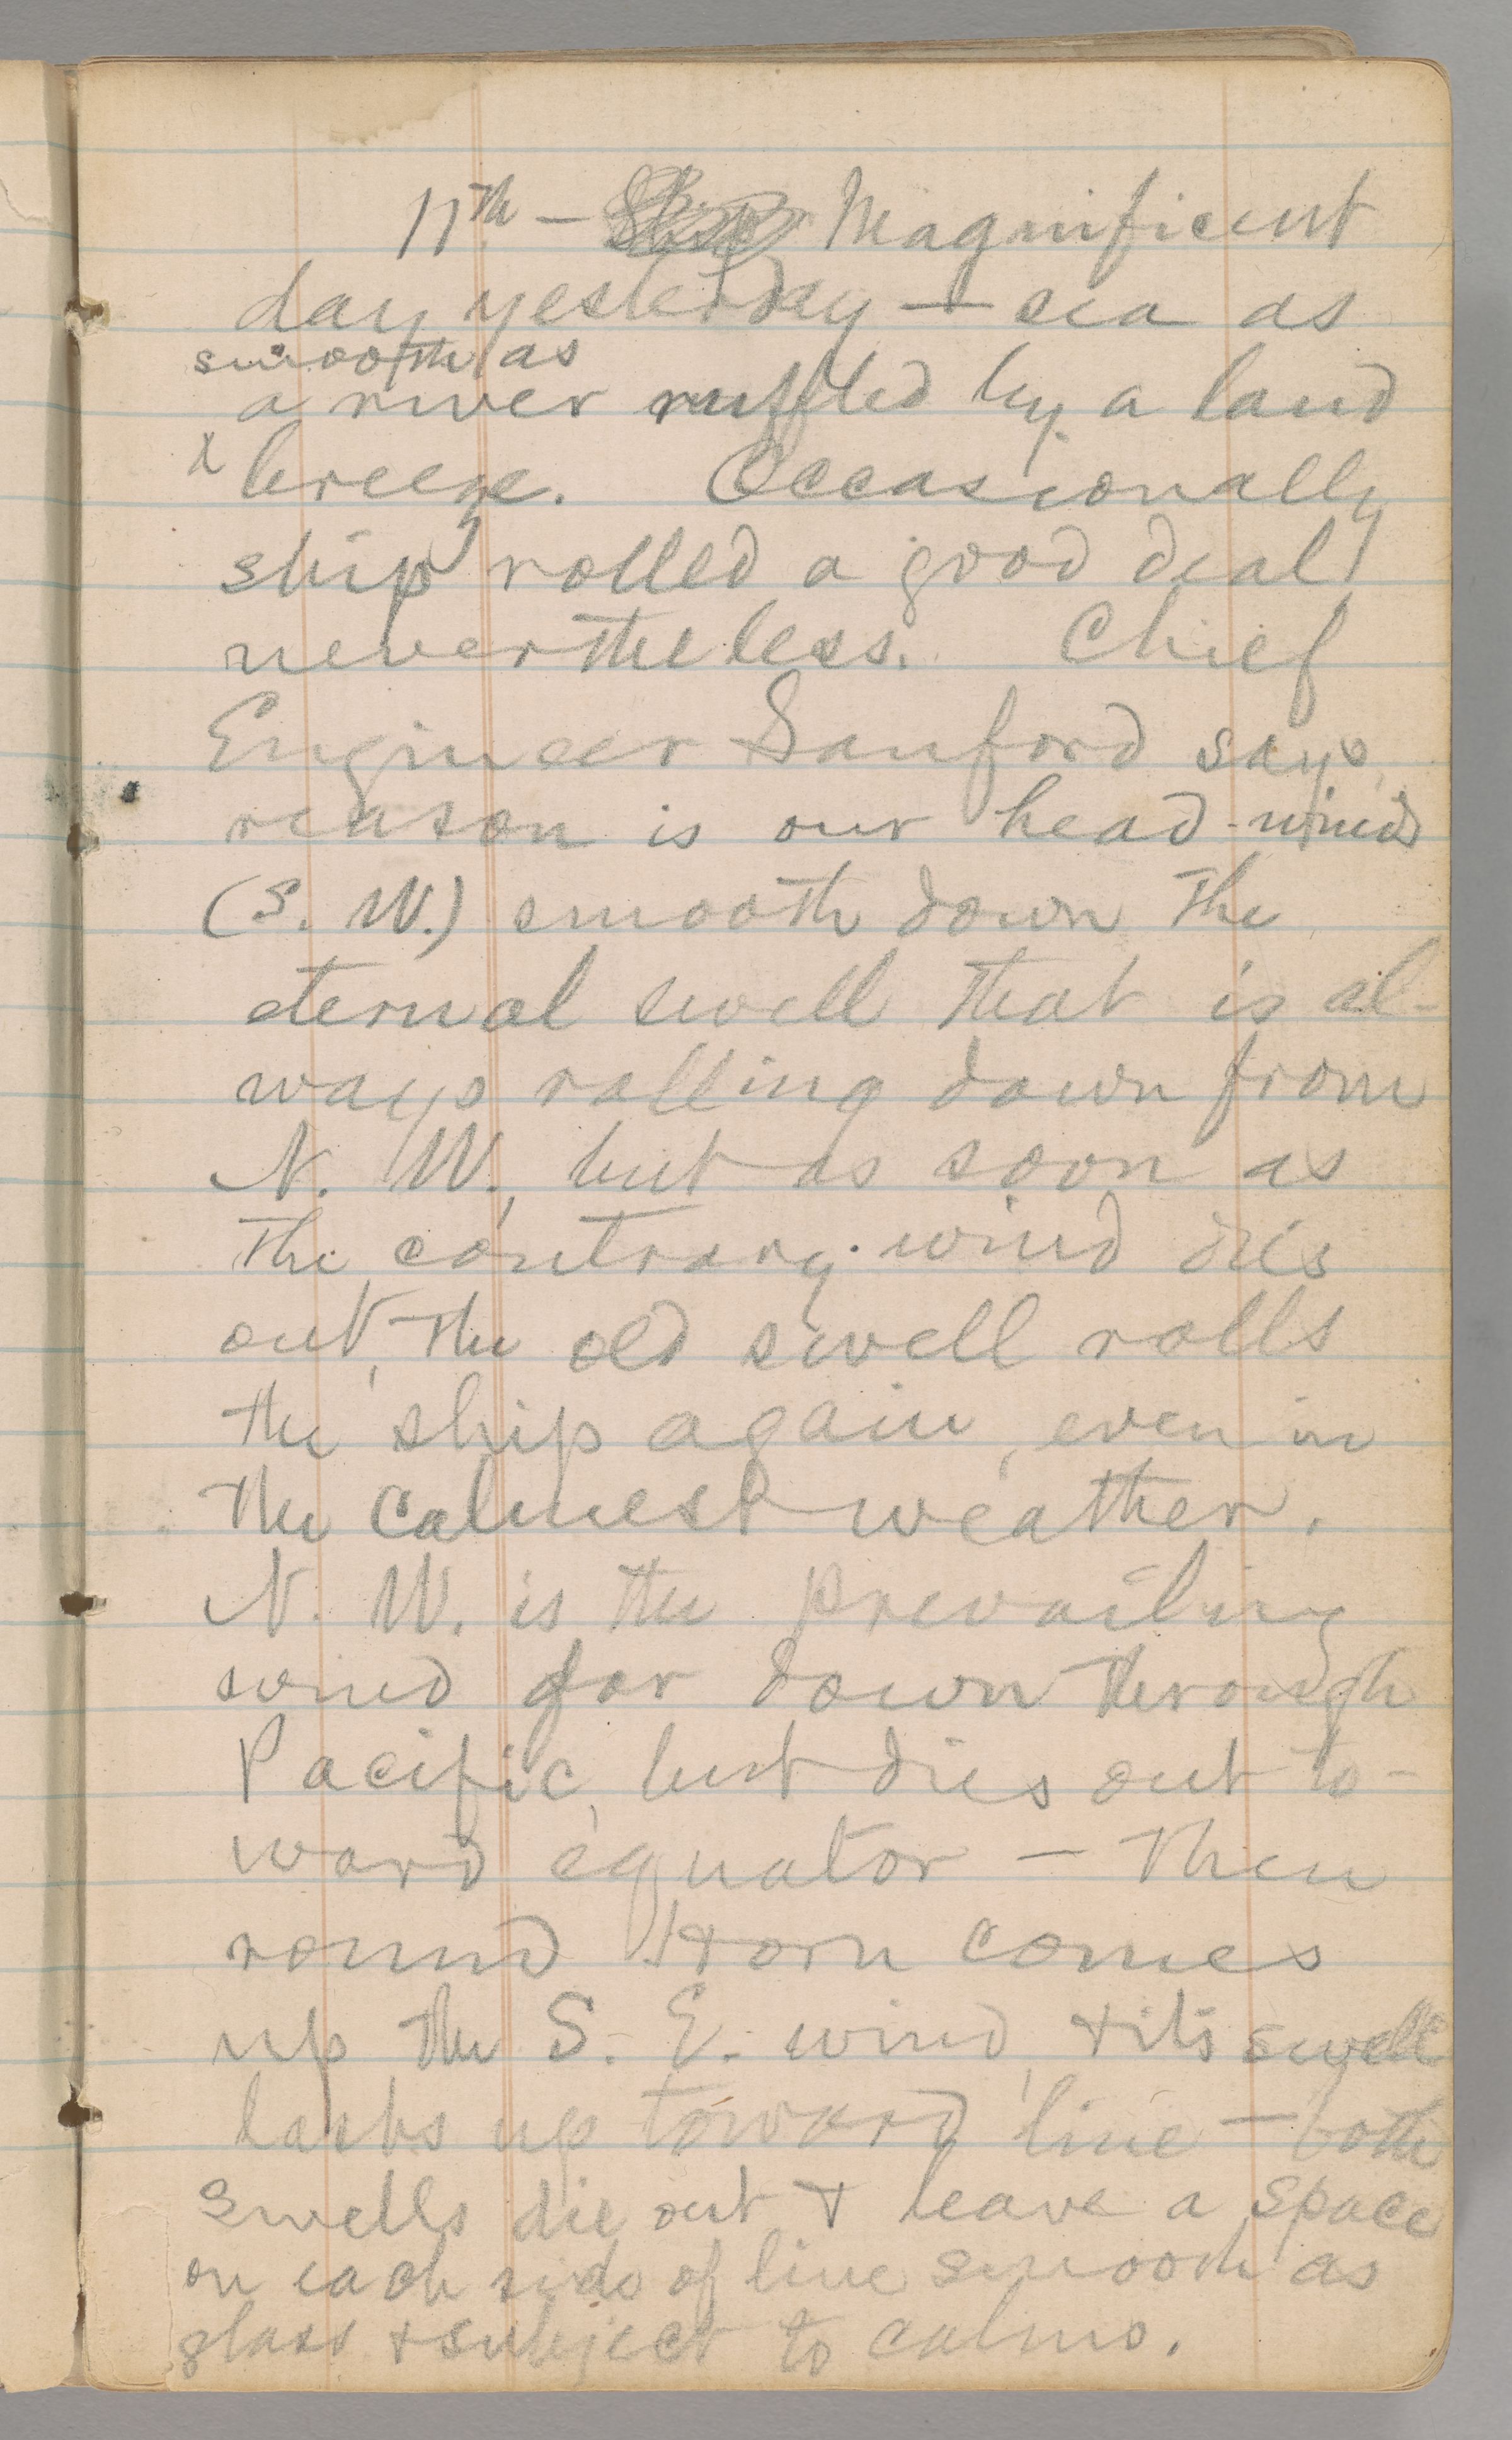 11th — Magnificent
day yesterday — sea as
smooth as
a river ruffled by a land
x breeze. Occasionally
ship rolled a good deal
nevertheless. Chief
Engineer Sanford says
reason is our head-winds
(S. W.) smooth down the
eternal swell that is al-
ways rolling down from
N. W., but as soon as
the contrary wind dies
out, the old swell rolls
the ship again, even in
the calmest weather.
N. W. is the prevailing
wind far down through
Pacific, but dies out to-
ward equator — Then
round Horn comes
up the S. E. wind, & its swell
lasts up toward line — both
swells die out & leave a space
on each side of line smooth as
glass & subject to calms.